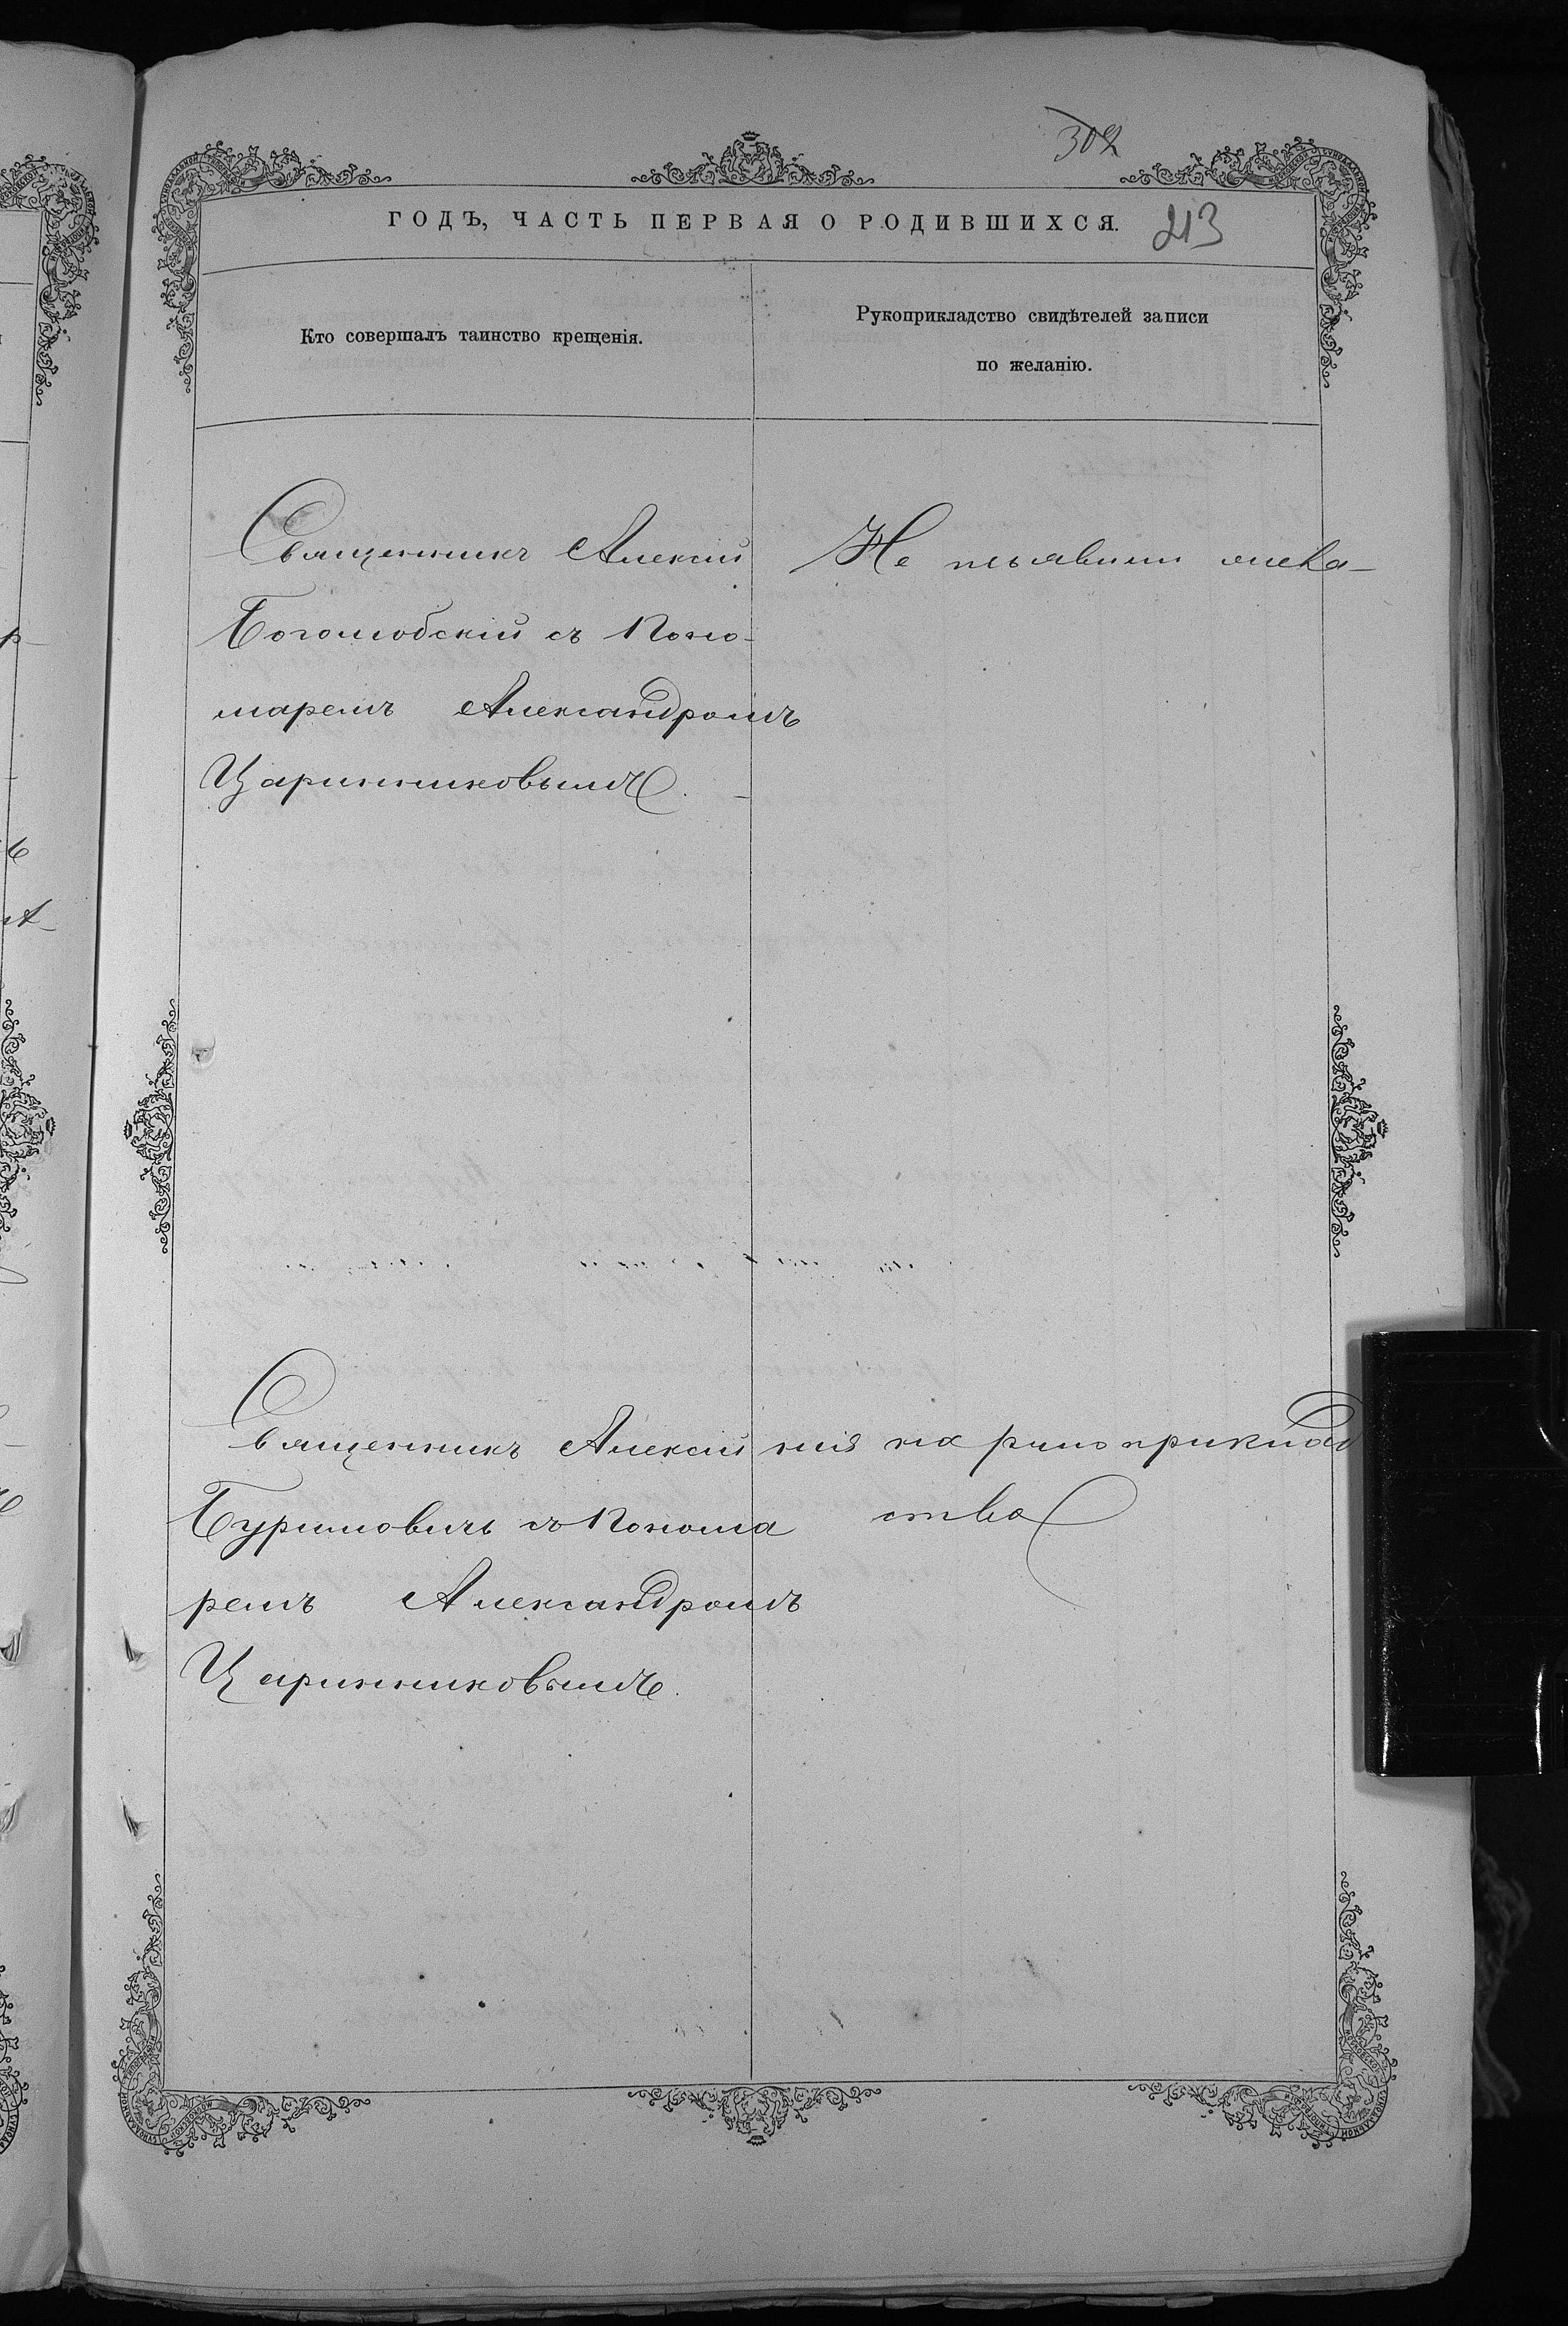 302
ГОДЪ, ЧАСТЬ ПЕРВАЯ О РОДИВШИХСЯ.
213
Кто совершалъ таинство крещенія.
Рукоприкладство свидѣтелей записи
по желанію.
Священникъ Алексій
Боголюбскій съ Поно-
маремъ Александромъ
Царинниковымъ.
Не изъявили жела-
Священникъ Алексій
Буримовичъ съ Понома
ремъ Александромъ
Царинниковымъ.
нія на рукоприклад
ства